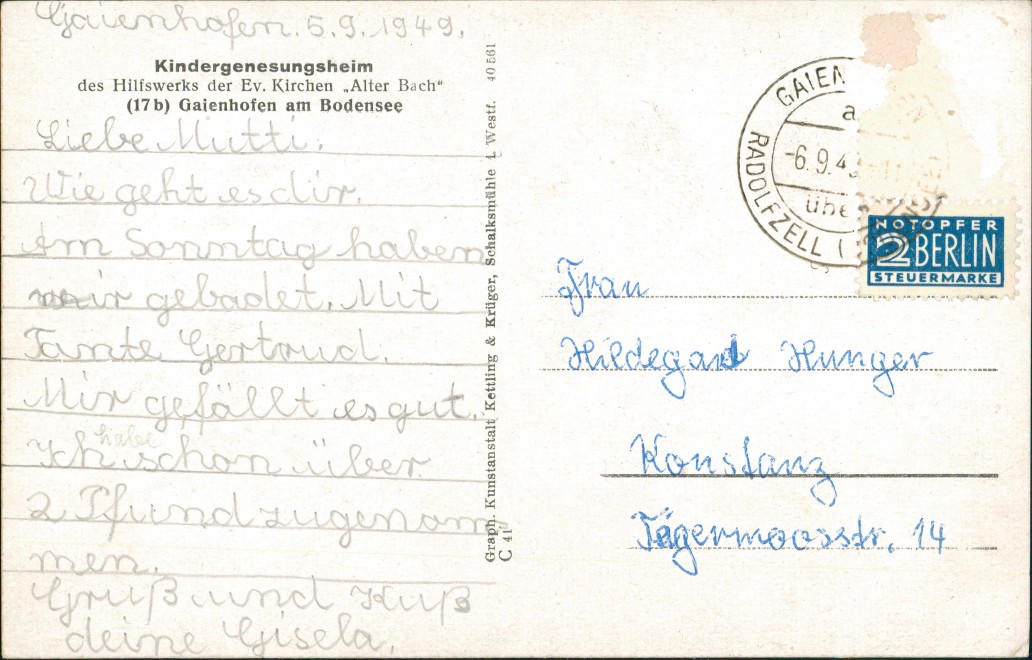 Gaienhofen. 5.9.1949.
Kindergenesungsheim
des Hilfswerks der Ev. Kirchen „Alter Bach“
(17b) Gaienhofen am Bodensee
Liebe Mutti.
Wie geht es dir.
Am Sonntag haben
wir gebadet. Mit
Tante Gertrud.
Mir gefällt es gut.
Ich habe schon über
2 Pfund zugenom
men.
Gruß und Kuß
deine Gisela.
Graph. Kunstanstalt Kettling & Krüger, Schalksmühle i. Westf. 40 561
C 41
GAIEN
a
-6.9.49
übe
RADOLFZELL (
NOTOPFER
2 BERLIN
STEUERMARKE
Frau
Hildegard Hunger
Konstanz
Jägermoosstr. 14